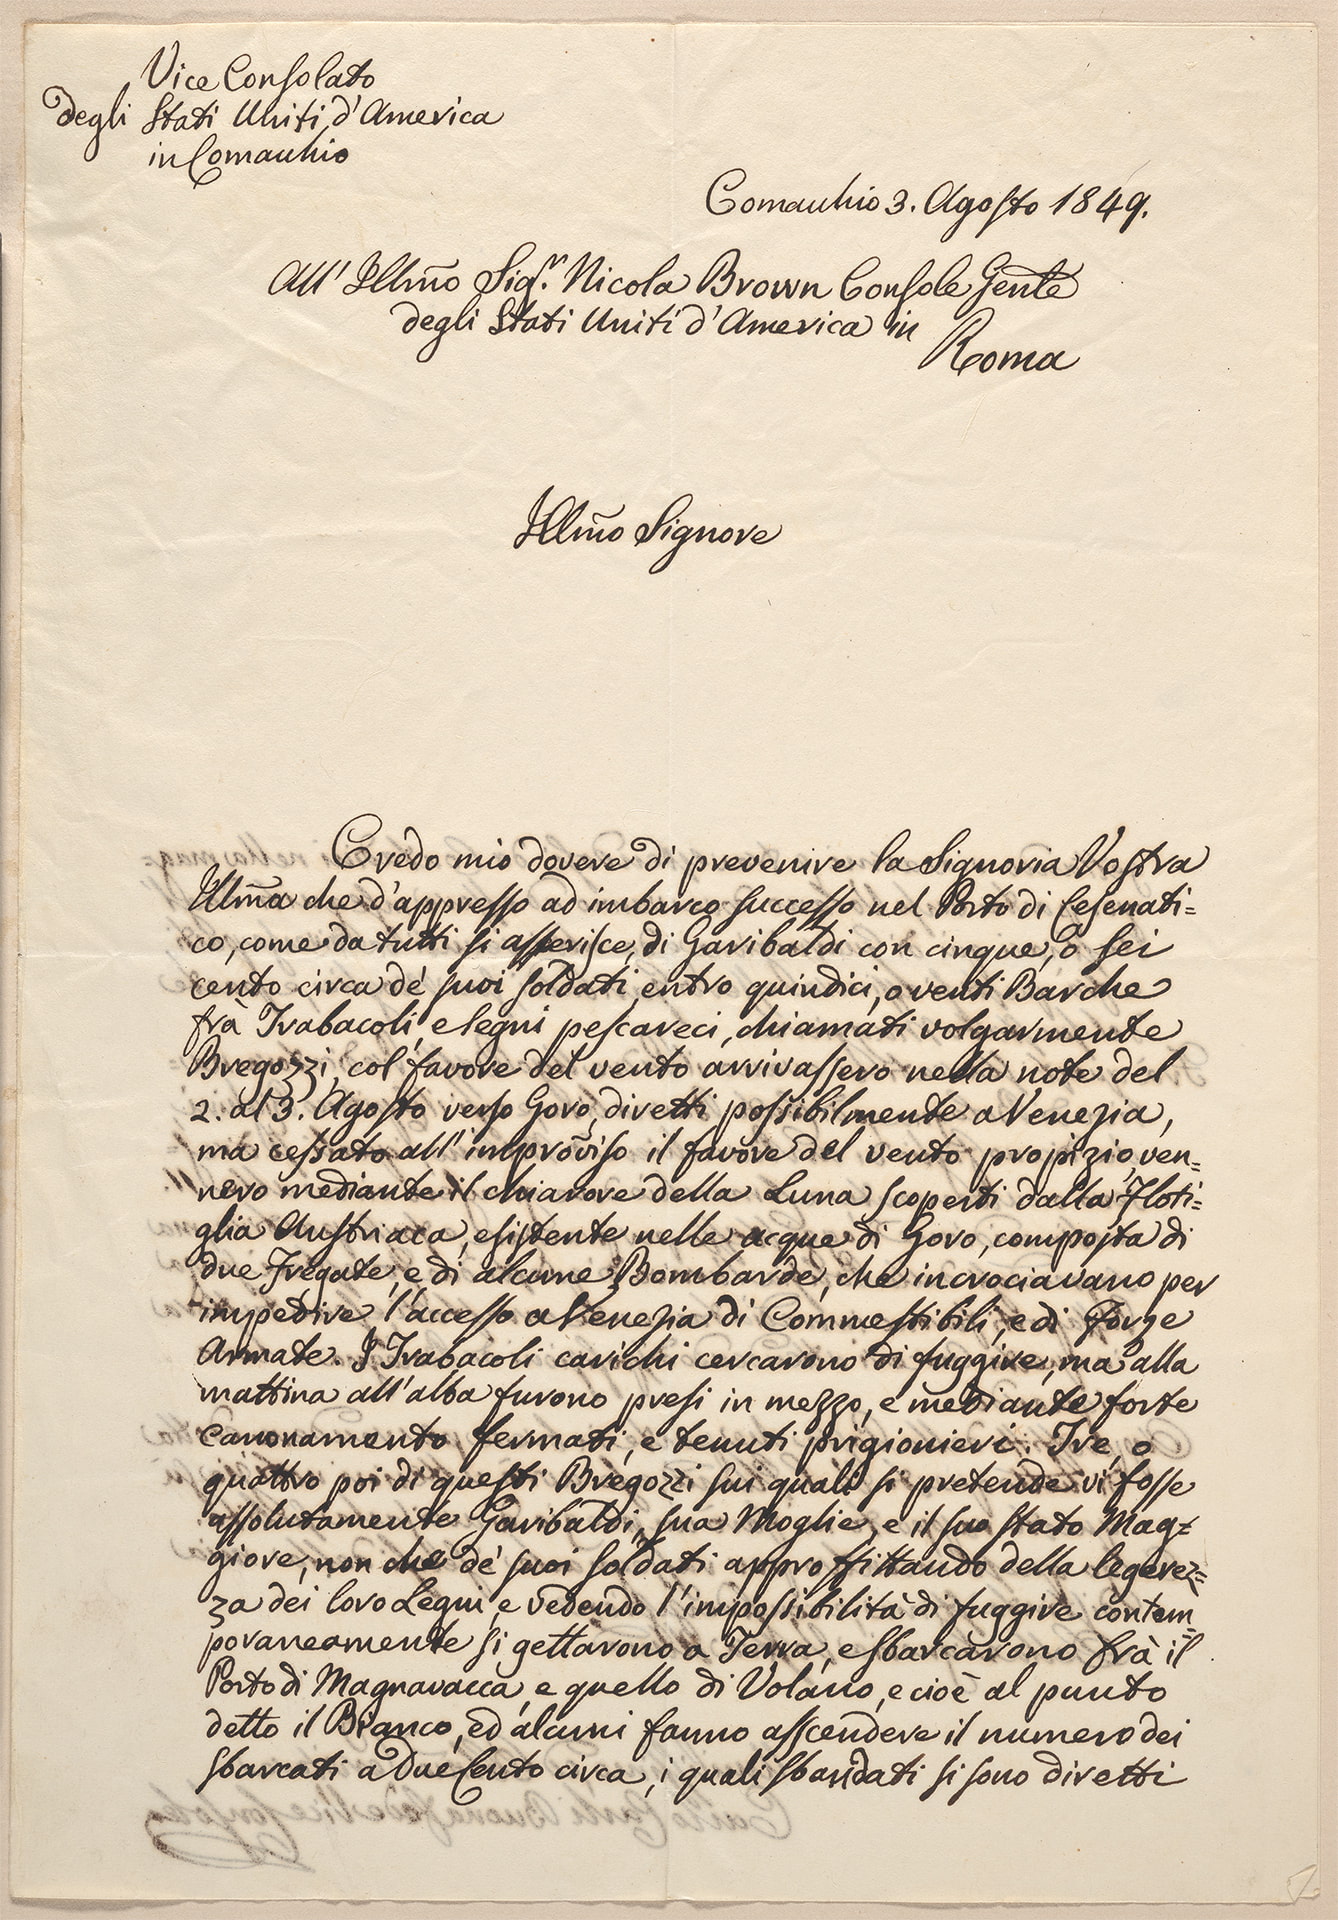 Vice Consolato
degli Stati Uniti d'America
in Comacchio
Comacchio 3. Agosto 1849.
All' Illmo Sigr. Nicola Brown Console Gente
degli Stati Uniti d'America in
Roma
Illmo Signore
Credo mio dovere di prevenire la Signoria Vostra
Illma che d'appresso ad imbarco successo nel Porto di Cesenati=
co, come da tutti si asserisce, di Garibaldi con cinque, o sei
cento circa de' suoi soldati, entro quindici, o venti Barche
frà Trabacoli, e legni pescareci, chiamati volgarmente
Bregozzi, col favore del vento arrivassero nella note del
2. al 3. Agosto verso Goro, diretti possibilmente a Venezia,
ma cessato all'improviso il favore del vento propizio, ven=
nero mediante il chiarore della Luna scoperti dalla Floti=
glia Austriaca, esistente nelle acque di Goro, composta di
due Fregate, e di alcune Bombarde, che incrociavano per
impedire l'accesso a Venezia di Commestibili, e di Forze
Armate. I Trabacoli carichi cercarono di fuggire, ma alla
mattina all'alba furono presi in mezzo, e mediante forte
Canonamento fermati, e tenuti prigionieri. Tre, o
quattro poi di questi Bregozzi sui quali si pretende vi fosse
assolutamente Garibaldi, sua Moglie, e il suo Stato Mag=
giore, non che de' suoi soldati approffittando della legerez=
za dei loro Legni, e vedendo l'impossibilità di fuggire contem=
poraneamente si gettarono a Terra, e sbarcarono frà il
Porto di Magnavacca, e quello di Volano, e cioè al punto
detto il Bianco, ed alcuni fanno asscendere il numero dei
sbarcati a Due Cento circa, i quali sbandati si sono diretti